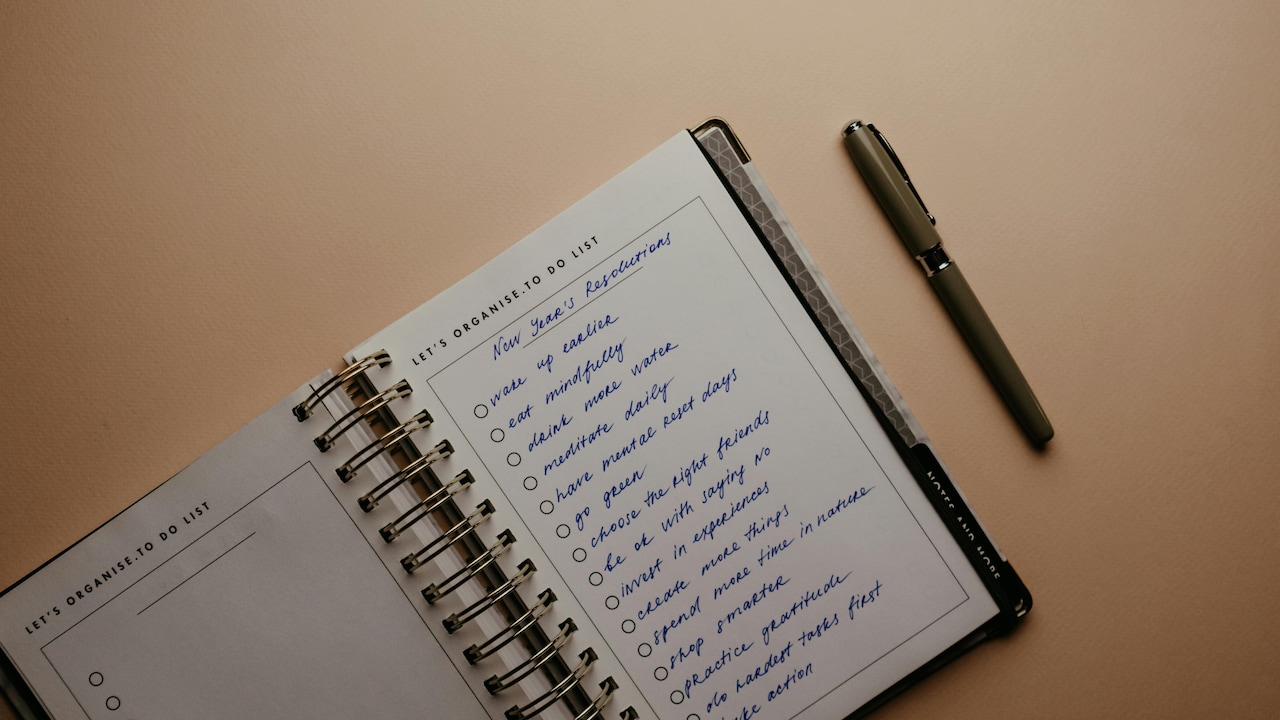 LET'S ORGANISE.TO DO LIST
LET'S ORGANISE.TO DO LIST
New Year's Resolutions
wake up earlier
eat mindfully
drink more water
meditate daily
have mental reset days
go green
choose the right friends
be ok with saying NO
invest in experiences
create more things
spend more time in nature
shop smarter
practice gratitude
do hardest tasks first
action
NOTES AND MORE